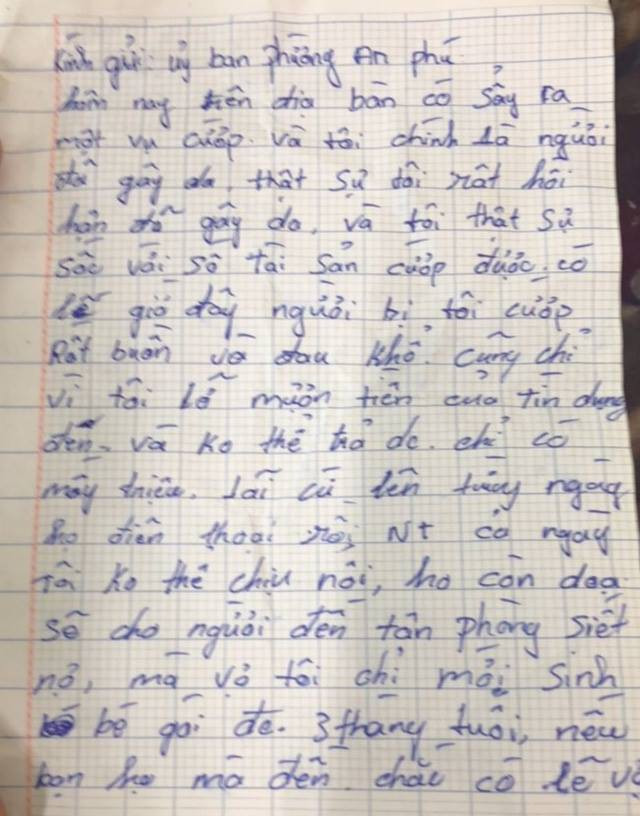 Kính gửi: ủy ban phường An phú
hôm nay trên địa bàn có sảy ra
một vụ cướp. và tôi chính là người
đã gây da, thật sự tôi rất hối
hận đã gây da, và tôi thật sự
sốc với số tài sản cướp được. có
lẽ giờ đây người bị tôi cướp
Rất buồn và đau khổ. cũng chỉ
vì tôi lỡ mượn tiền của tín dụng
đen. và ko thể trả dc. chỉ có
mấy triệu. lãi cứ lên từng ngày
họ điện thoại rồi NT cả ngày
tôi ko thể chịu nổi, họ còn dọa
sẽ cho người đến tận phòng siết
nợ, mà vợ tôi chỉ mới sinh
bé gái dc. 3 tháng tuổi, nếu
bọn họ mà đến. chắc có lẽ vợ